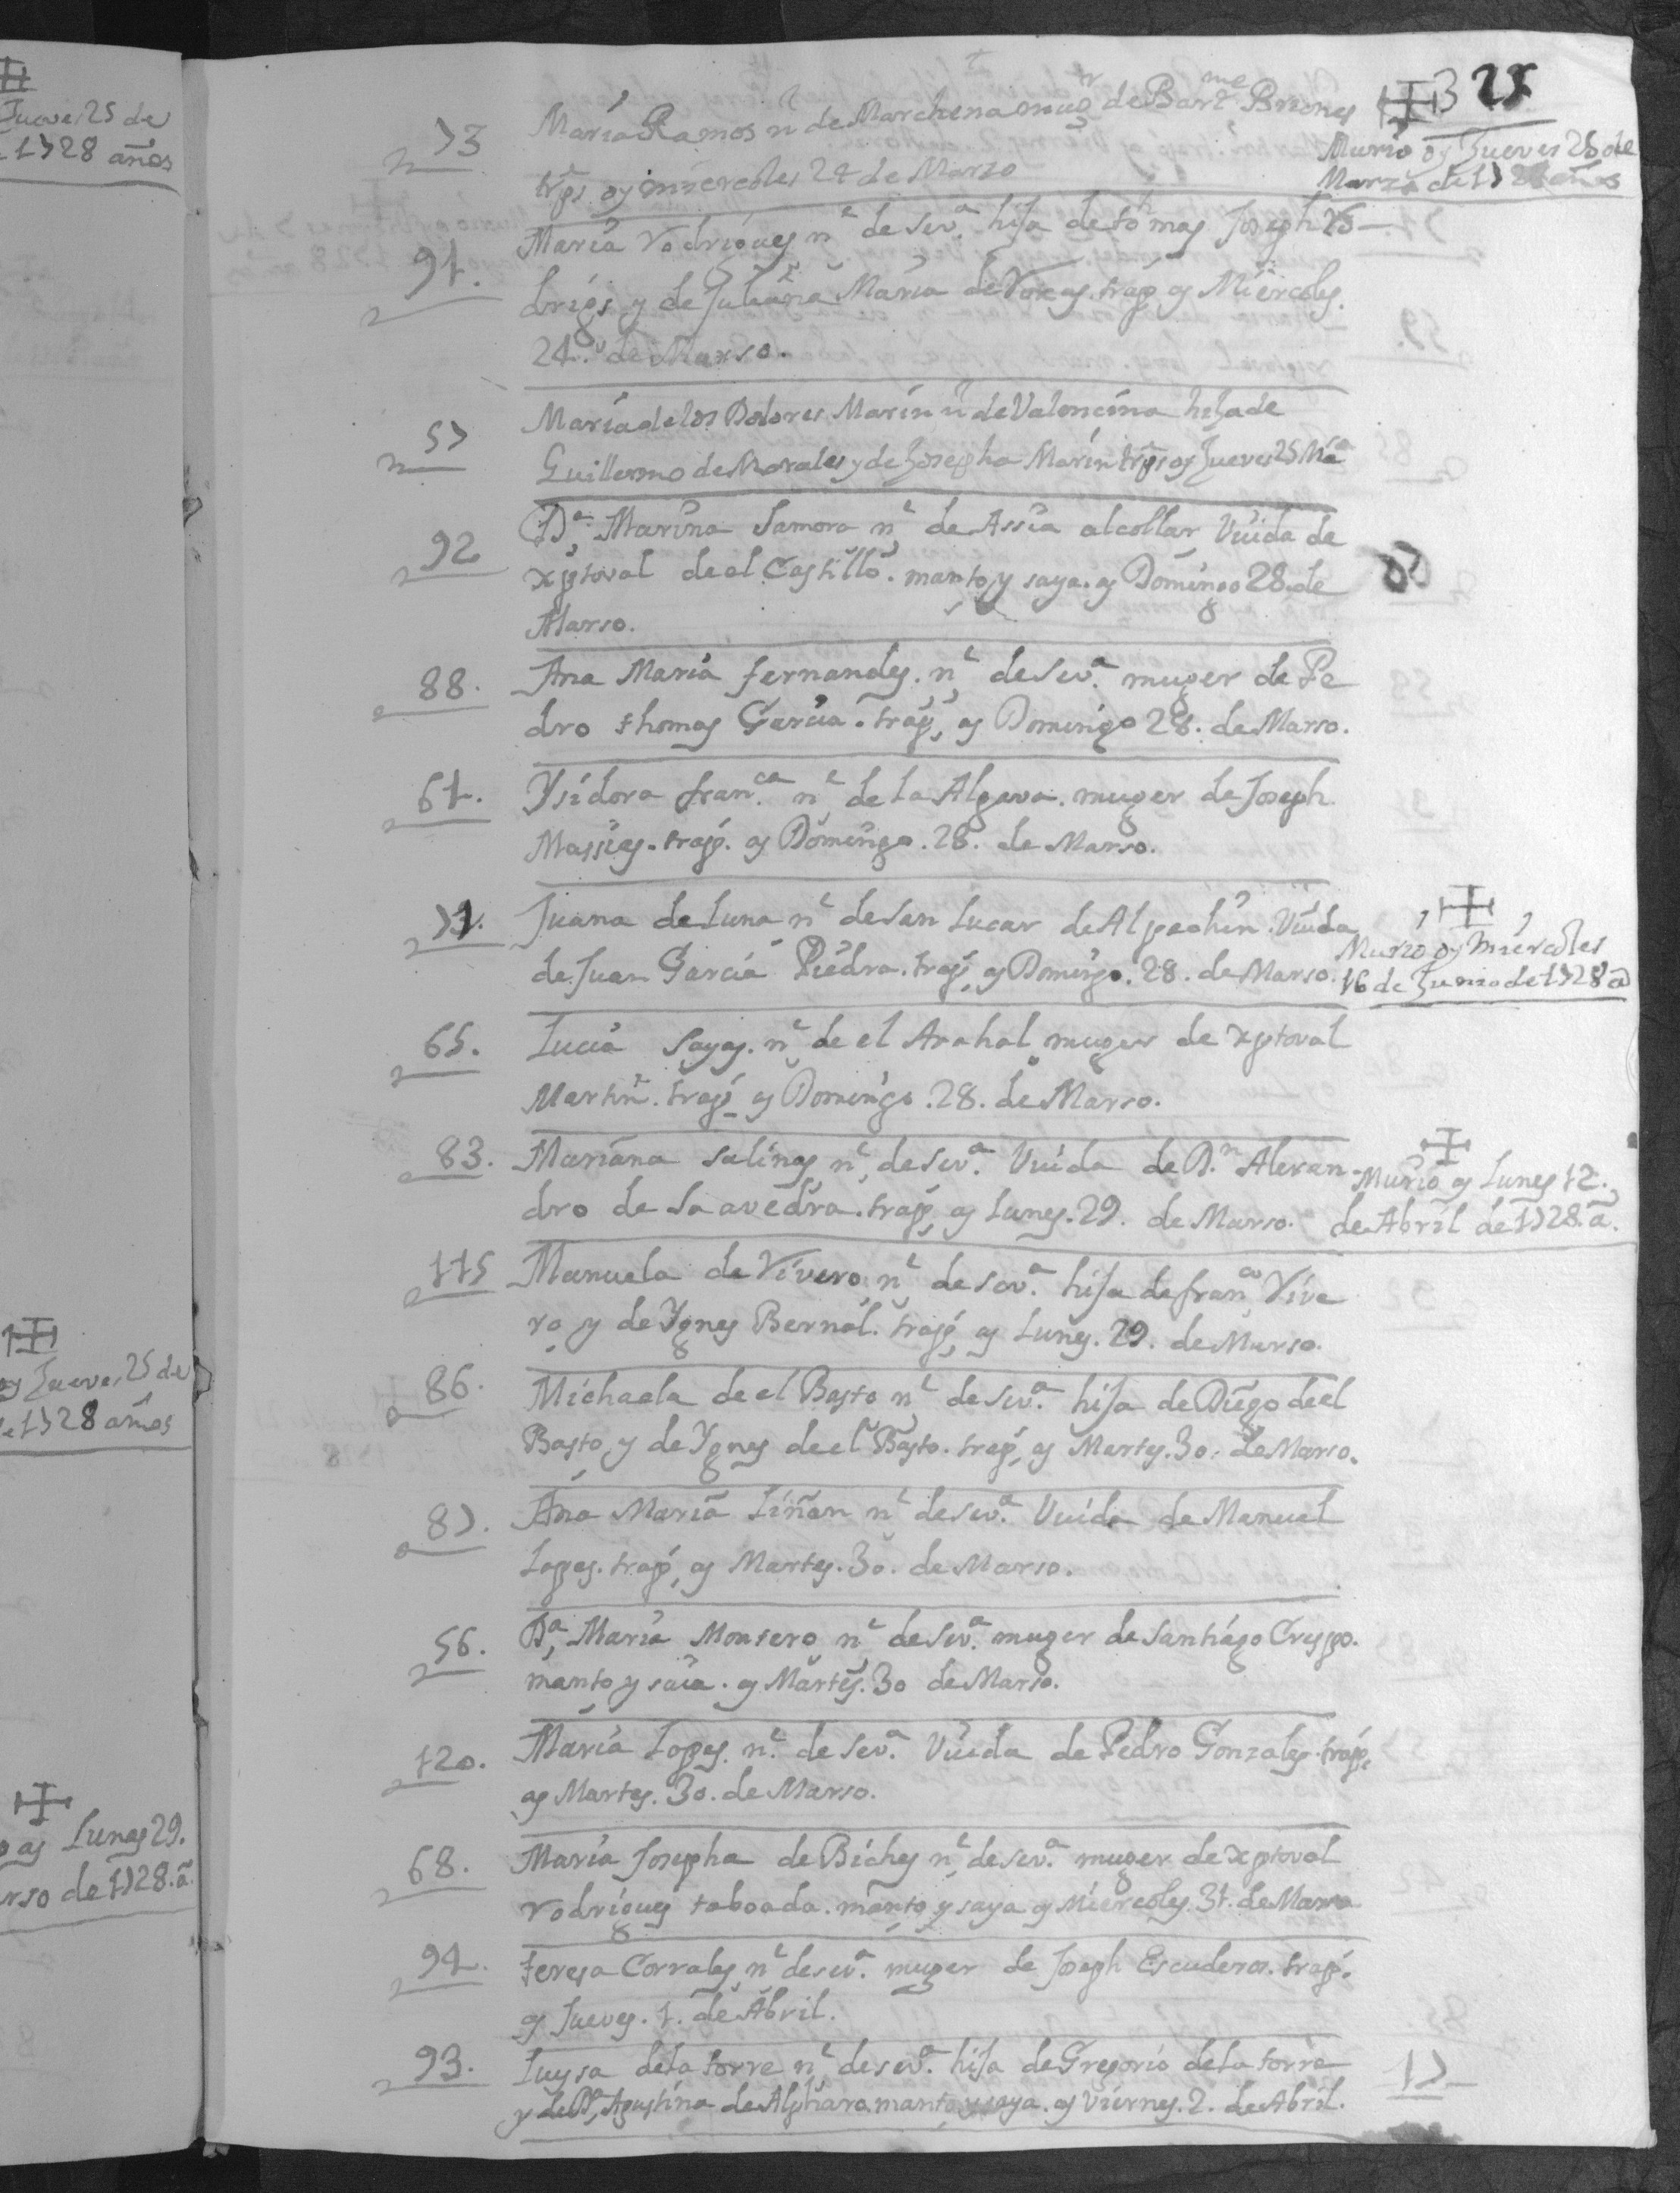 Jueves 25 de
1728 años
oy Jueves 25 de
de 1728 años
oy Lunes 29.
Marso de 1728. ã.
3 25
73
Maria Ramos n.l de Marchena mug.r de Bar.me Briones
trps. oy miercoles 24 de Marzo
Murió oy Jueves 25 de
Marzo de 1728 años
91.
Maria Rodrigues n.l de Sev.a hija de thomas Joseph Ro-
drigs y de Juliana Maria de trap. oy Miercoles.
24. de Marso.
57
Maria de los Dolores Marin n.l de Valencina hija de
Guillermo de Morales y de Josepha Marin trps oy Jueves 25 Mso
92
D.a Marina Samora n.l de Assia alcollar Viuda de
xptoval de el Castillo. manto y saya. oy Domingo 28. de
Marso.
88.
Ana Maria fernandes. n.l de Sev.a muger de Pe
dro thomas Garcia. trap. oy Domingo 28. de Marso.
61.
Ysidora fran.ca n.l de la Algava. muger de Joseph
Massias. trap. oy Domingo. 28. de Marso.
71.
Juana de Luna n.l de San Lucar de Alpechin. Viuda
de Juan Garcia Piedra. trap. oy Domingo. 28. de Marso.
Murió oy Miercoles
16 de Junio de 1728 ã
65.
Lucia Sayas. n.l de el Arahal muger de xptoval
Martin. trap. oy Domingo. 28. de Marso.
83.
Mariana Salinas n.l de Sev.a Viuda de D.n Alexan-
dro de Saavedra. trap. oy Lunes. 29. de Marso.
Murió oy Lunes 12.
de Abril de 1728. ã.
115
Manuela de Vivero n.l de Sev.a hija de fran.co Vive
ro y de Ygnes Bernal. trap. oy Lunes. 29. de Marso.
86.
Michaela de el Basto n.l de Sev.a hija de Diego de el
Basto y de Ygnes de el Basto. trap. oy Martes. 30. de Marso.
87.
Ana Maria Liñan n.l de Sev.a Viuda de Manuel
Lopes. trap. oy Martes. 30. de Marso.
56.
D.a Maria Montero n.l de Sev.a muger de Santiago Crespo.
manto y saia. oy Martes. 30 de Marso.
120.
Maria Lopes. n.l de Sev.a Viuda de Pedro Gonzales. trap.
oy Martes. 30. de Marso.
68.
Maria Josepha de Biches n.l de Sev.a muger de xptoval
Rodrigues taboada. manto y saya oy Miercoles. 31. de Marso
94.
teresa Corrales n.l de Sev.a muger de Joseph Escuderos. trap.
oy Jueves. 1. de Abril.
93.
Luysa de la torre n.l de Sev.a hija de Gregorio de la torre
y de D.a Agustina de Alpharo. manto y saya. oy Viernes. 2. de Abril.
17